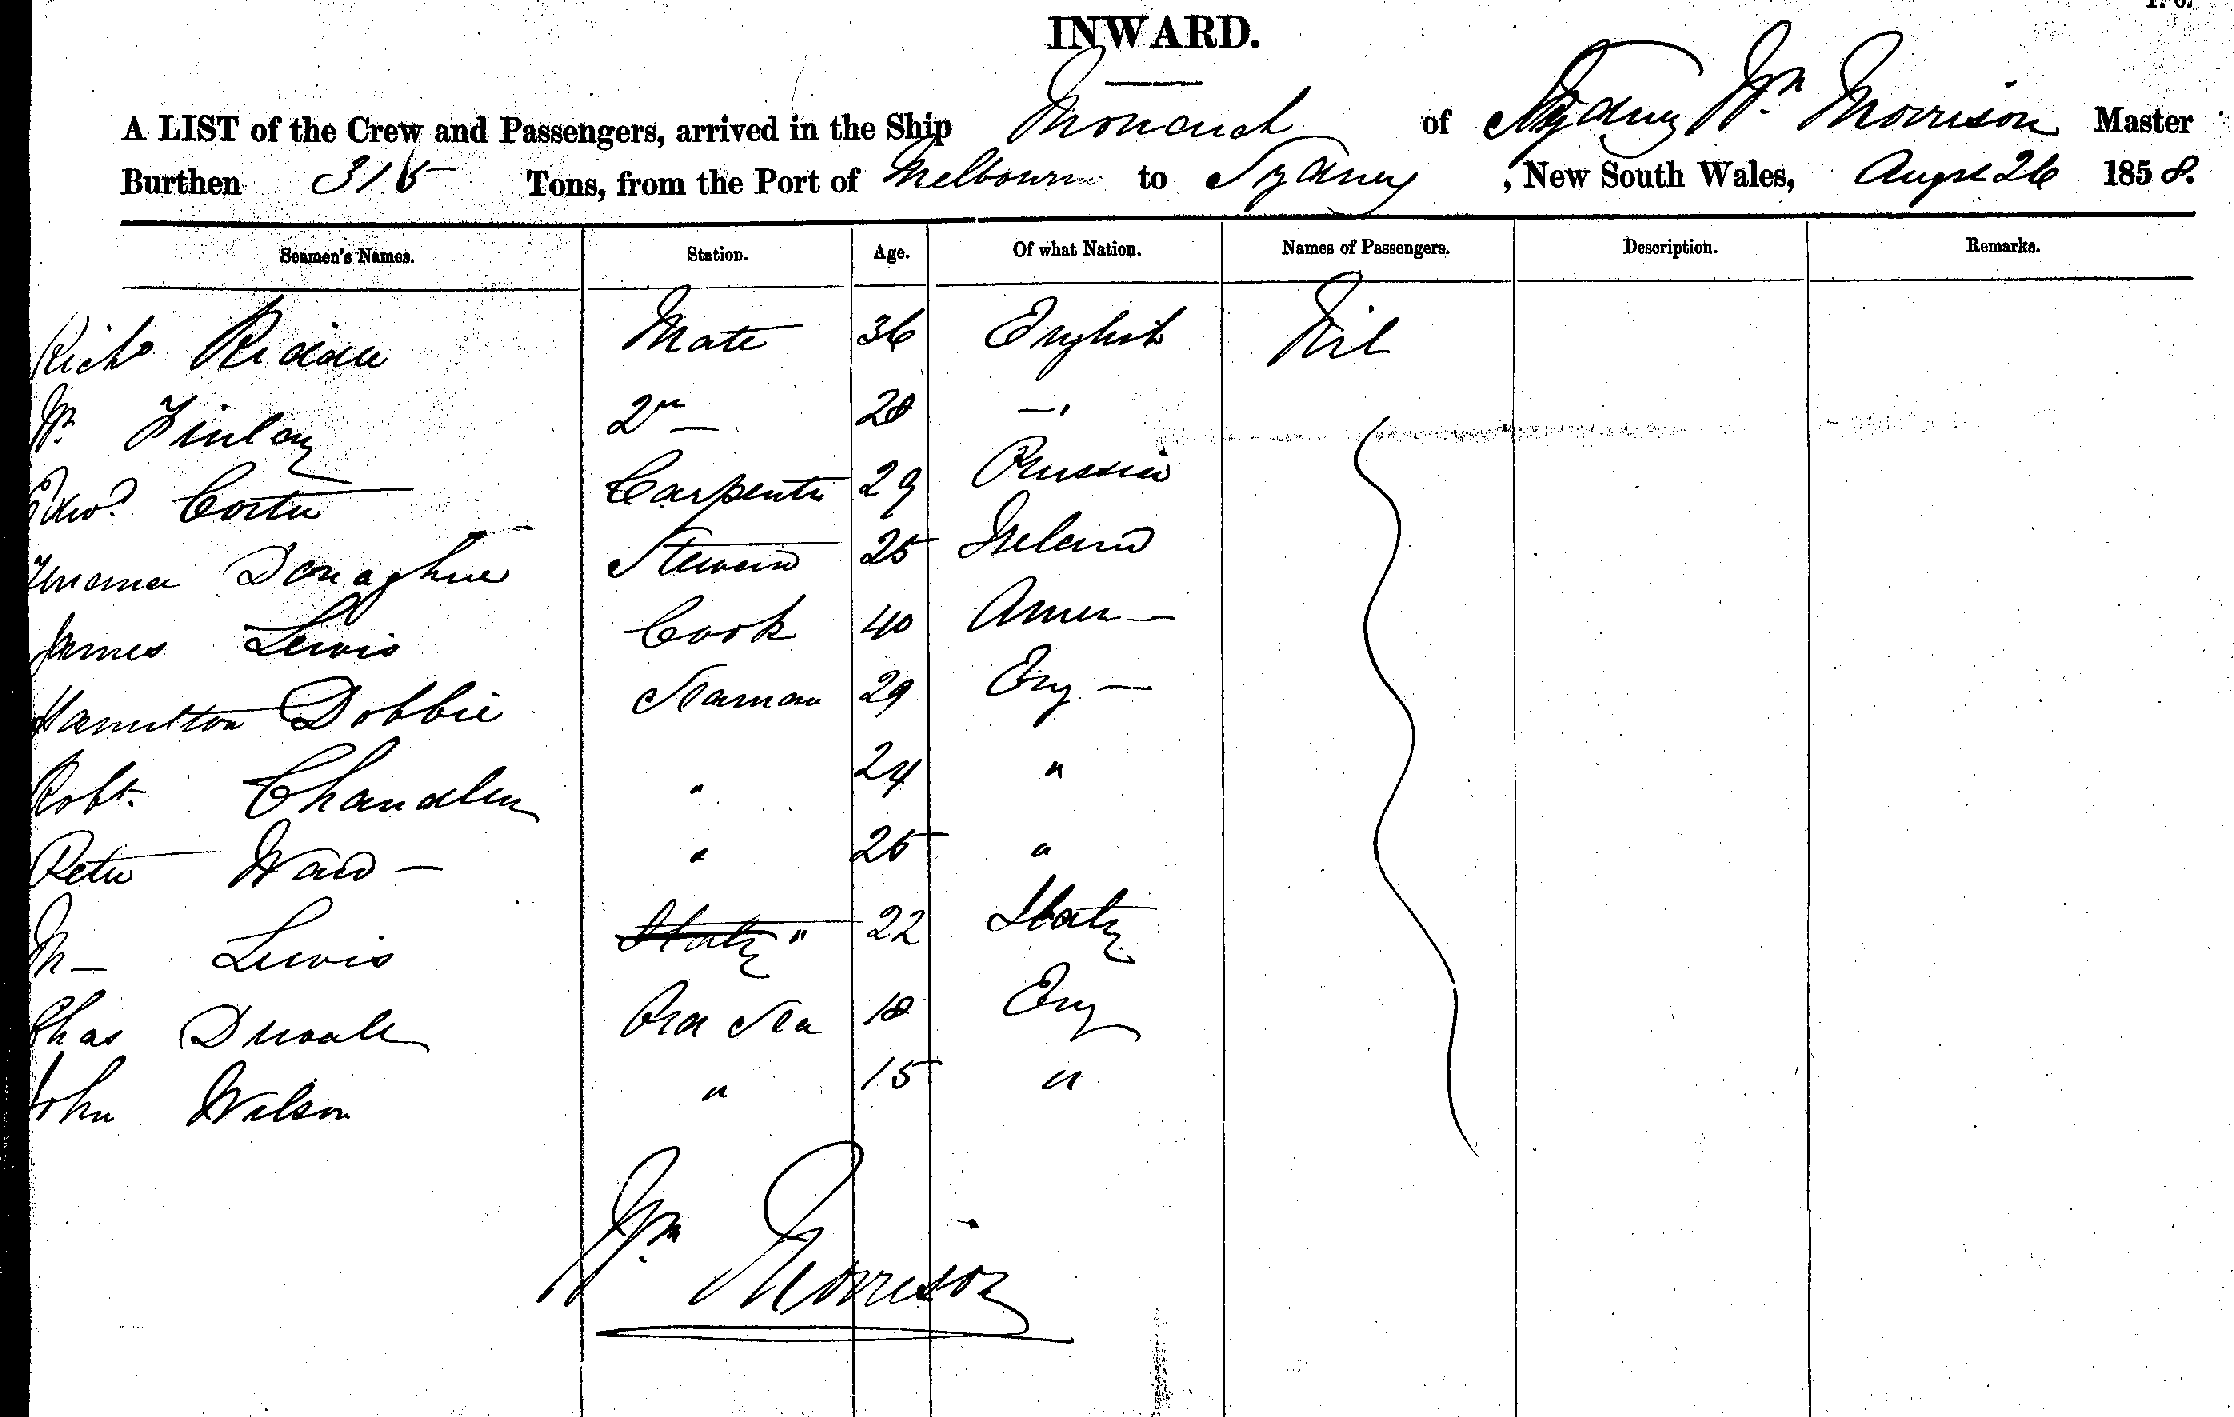 INWARD.
A LIST of the Crew and Passengers, arrived in the Ship Monarch of Sydney Wm Morrison Master
Burthen 315 Tons, from the Port of Melbourne to Sydney, New South Wales, Augst 26 1858.
Seamen's Names. Station. Age. Of what Nation. Names of Passengers. Description. Remarks.
Richd Mate 36 English Nil
Wm Finlay 2nd — 28 —
Edwd. Carpenter 29 Prussia
Donaghue Steward 25 Ireland
James Lewis Cook 40 Amer —
Hamilton Dobbie Seaman 29 Eng —
Robt. Chandler " 24 "
Peter Ward — " 25 "
M — Lewis Italy " 22 Italy
Chas Ord Sea 18 Eng
John Wilson " 15 "
Wm Morrison